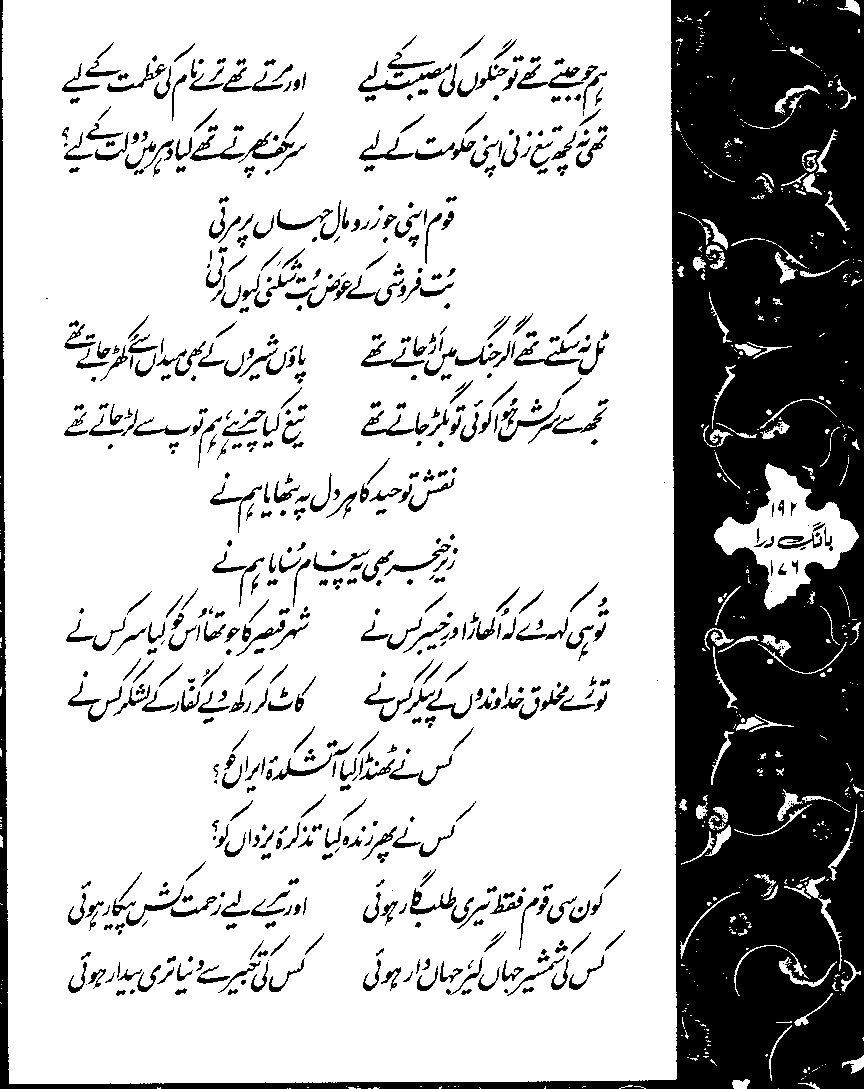 ہم جو جیتے تھے تو جنگوں کی مصیبت کے لیے اور مرتے تھے ترے نام کی عظمت کے لیے
تھی نہ کچھ تیغ زنی اپنی حکومت کے لیے سر بکف پھرتے تھے کیا دہر میں دولت کے لیے؟
قوم اپنی جو زر و مالِ جہاں پر مرتی
بُت فروشی کے عوَض بُت شکنی کیوں کرتی!
ٹل نہ سکتے تھے اگر جنگ میں اَڑ جاتے تھے پاؤں شیروں کے بھی میداں سے اُکھڑ جاتے تھے
تجھ سے سرکش ہُوا کوئی تو بگڑ جاتے تھے تیغ کیا چیز ہے، ہم توپ سے لڑ جاتے تھے
نقش توحید کا ہر دل پہ بٹھایا ہم نے
زیرِ خنجر بھی یہ پیغام سُنایا ہم نے
تُو ہی کہہ دے کہ اُکھاڑا درِ خیبر کس نے شہر قیصر کا جو تھا، اُس کو کِیا سر کس نے
توڑے مخلوق خداوندوں کے پیکر کس نے کاٹ کر رکھ دیے کُفّار کے لشکر کس نے
کس نے ٹھنڈا کِیا آتشکدۂ ایراں کو؟
کس نے پھر زندہ کِیا تذکرۂ یزداں کو؟
کون سی قوم فقط تیری طلب گار ہوئی اور تیرے لیے زحمت کشِ پیکار ہوئی
کس کی شمشیر جہاں گیر، جہاں دار ہوئی کس کی تکبیر سے دنیا تری بیدار ہوئی
۱۹۲
بانگِ درا
۱۷۶